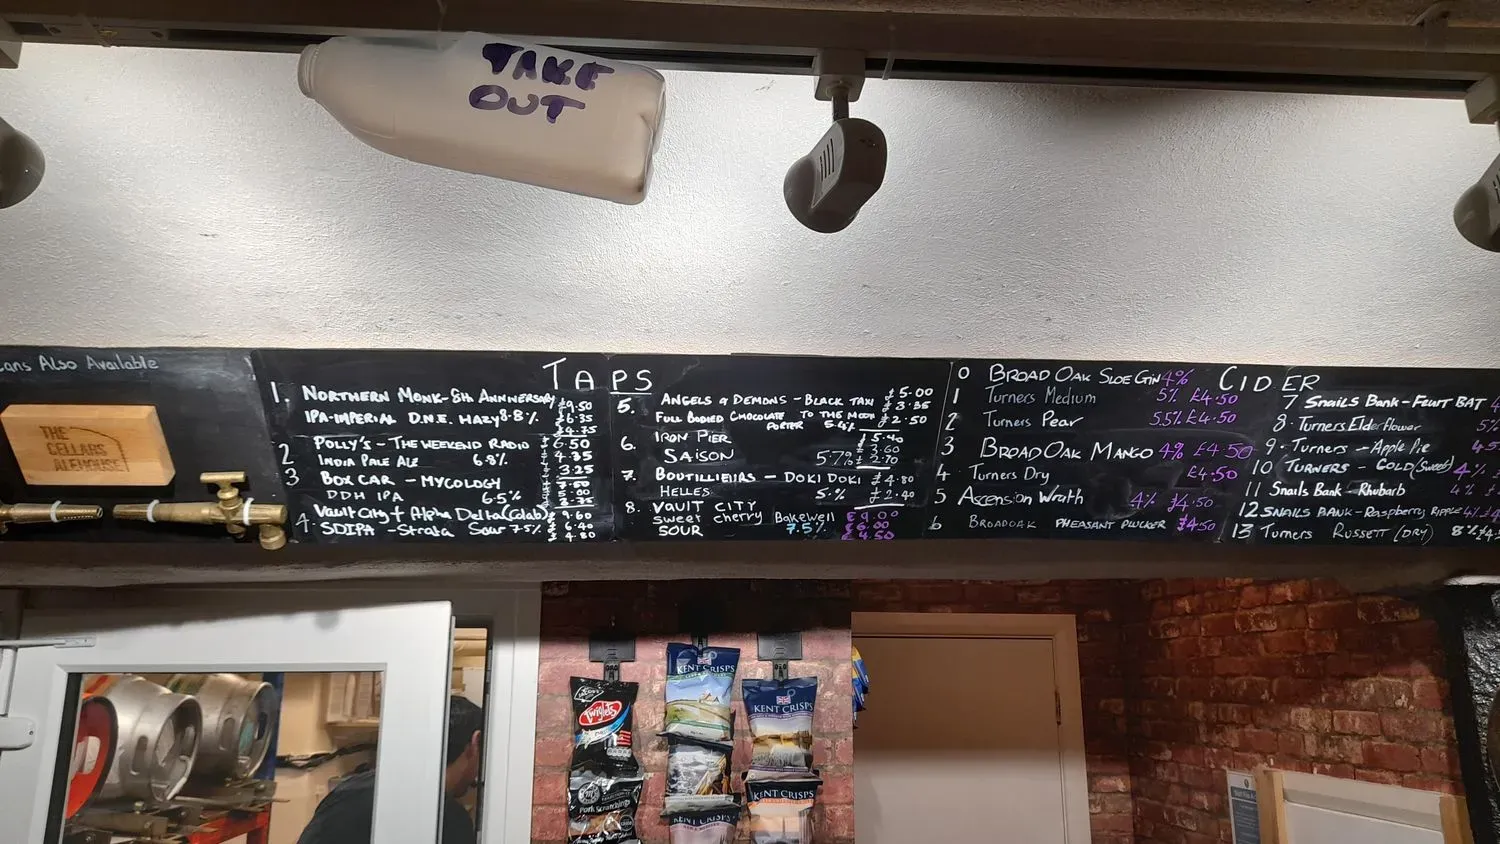 TAKE
OUT
ans Also Available
THE
CELLARS
ALEHOUSE
TAPS
1. NORTHERN MONK - 8th ANNIVERSARY
IPA-IMPERIAL D.N.E. HAZY 8.8%
£9.50
£6.35
£4.75
2 POLLY'S - THE WEEKEND RADIO
INDIA PALE ALE 6.8%
£6.50
£4.35
£3.25
3 BOX CAR - MYCOLOGY
DDH IPA 6.5%
4. Vault City + Alpha Delta (Colab)
SDIPA - Strata Sour 7.5%
£9.60
£6.40
£4.80
5. ANGELS & DEMONS - BLACK TAXI
FULL BODIED CHOCOLATE TO THE MOON
PORTER 5.4%
£5.00
£3.35
£2.50
6. IRON PIER
SAISON 5.7%
£5.40
£3.60
£2.70
7. BOUTILLIEURS - DOKI DOKI £4.80
HELLES 5.% £2.40
8. VAULT CITY
sweet cherry Bakewell
SOUR 7.5%
£9.00
£6.00
£4.50
CIDER
0 BROAD OAK SLOE GIN 4%
1 Turners Medium 5% £4.50
2 Turners Pear 5.5% £4.50
3 BROAD OAK MANGO 4% £4.50
4 Turners Dry £4.50
5 Ascension Wrath 4% £4.50
6 BROADOAK PHEASANT PLUCKER £4.50
7 Snails Bank - FRUIT BAT 4
8. Turners Elderflower 5%
9. Turners - Apple Pie
10 TURNERS - GOLD (Sweet) 4%
11 Snails Bank - Rhubarb 4%
12 SNAILS BANK - Raspberry RIPPLE 4%
13 Turners RUSSETT (DRY) 8%
KENT CRISPS
Twiglets
KENT CRISPS
Pork Scratchings
KENT CRISPS
KENT CRISPS